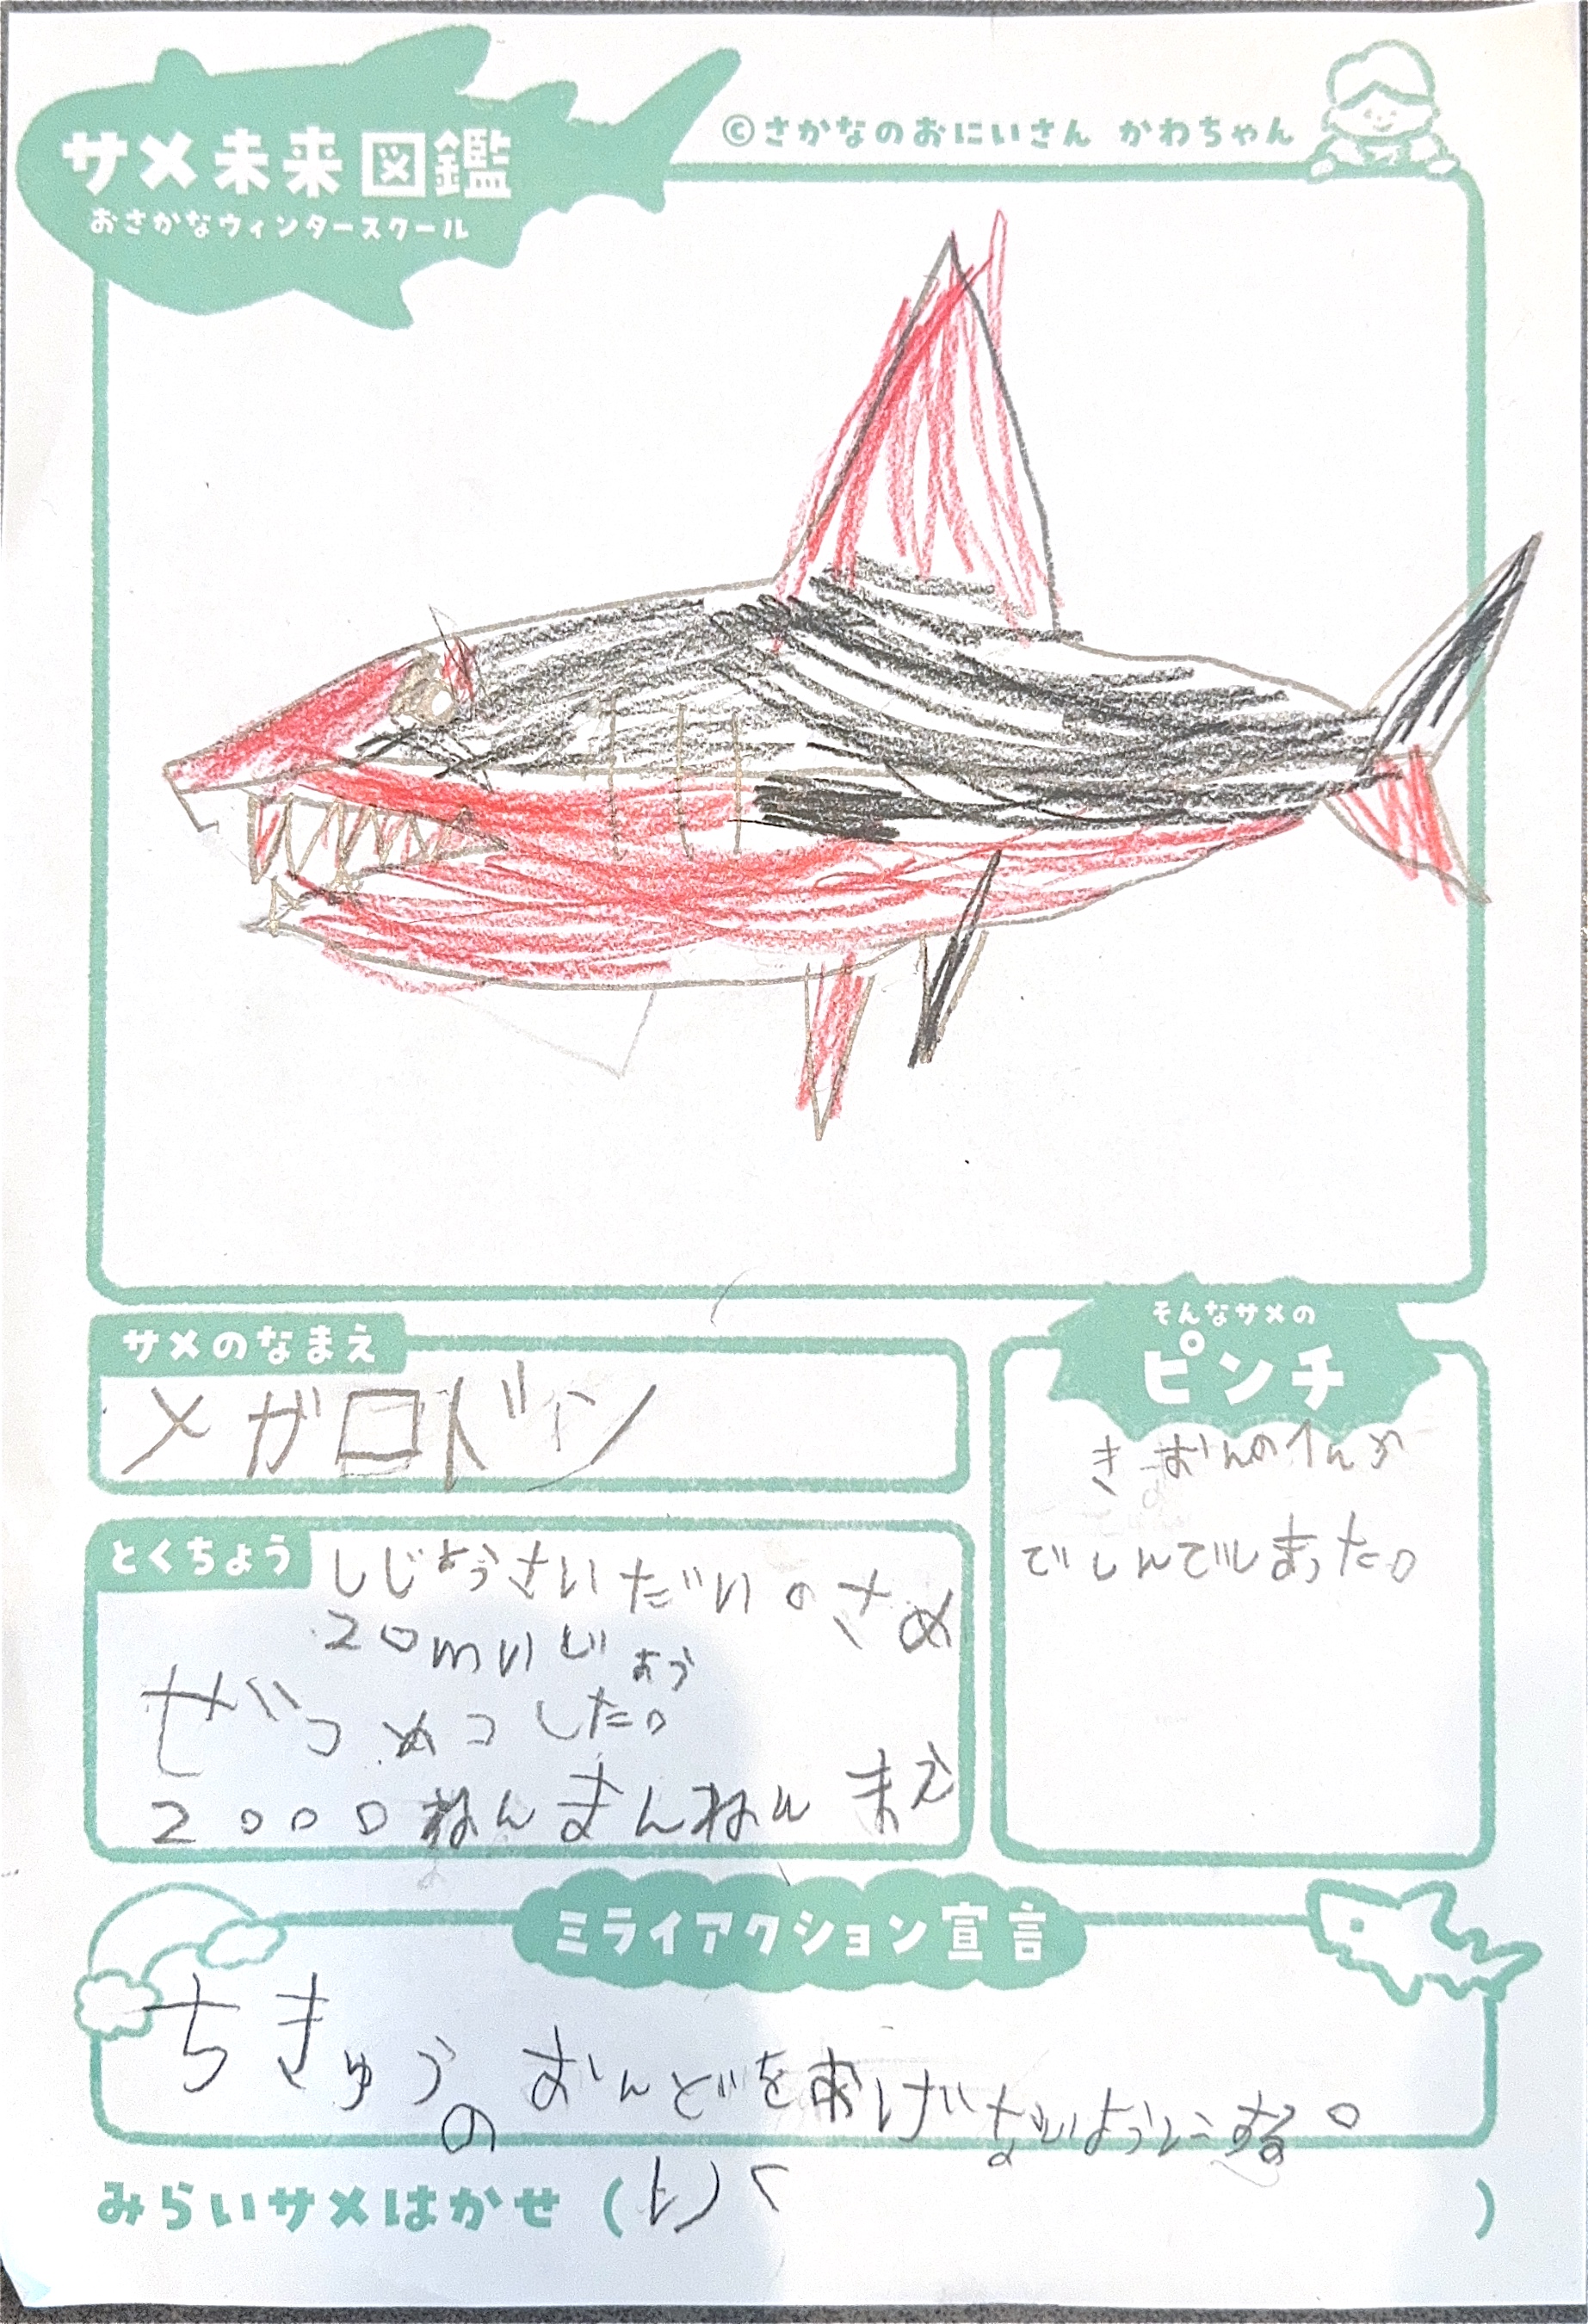 サメ未来図鑑
おさかなウィンタースクール
©さかなのおにいさん かわちゃん
サメのなまえ
メガロドン
とくちょう
しじょうさいだいのさめ
20mいじょう
ぜつめつした。
2000ねんまんねんまえ
そんなサメの
ピンチ
きおんのへんか
でしんでしまった。
ミライアクション宣言
ちきゅうのおんどをあげないようにする。
みらいサメはかせ ( りく )